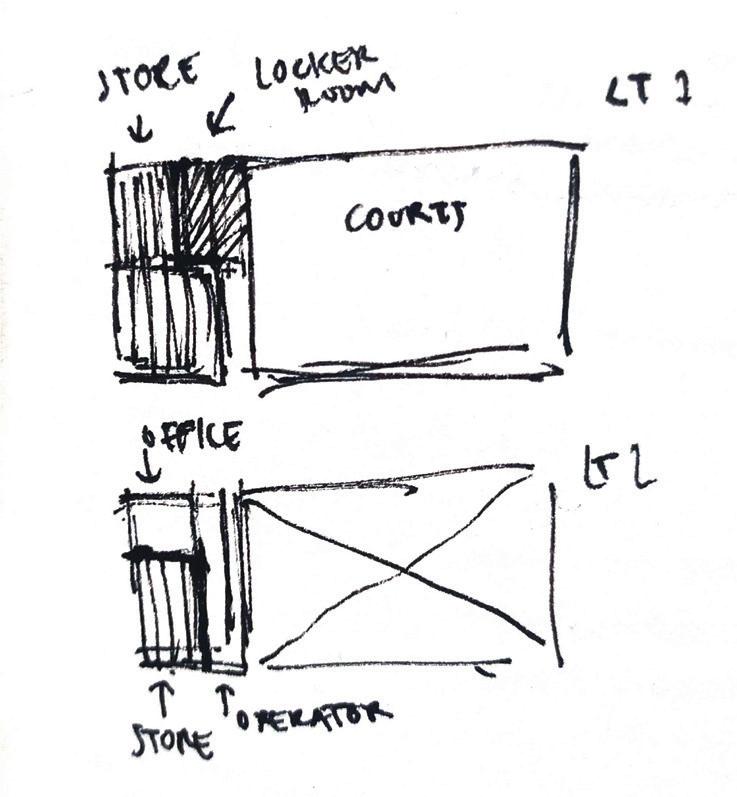 STORE
LOCKER
ROOM
LT 1
COURTS
OFFICE
LT 2
STORE
OPERATOR